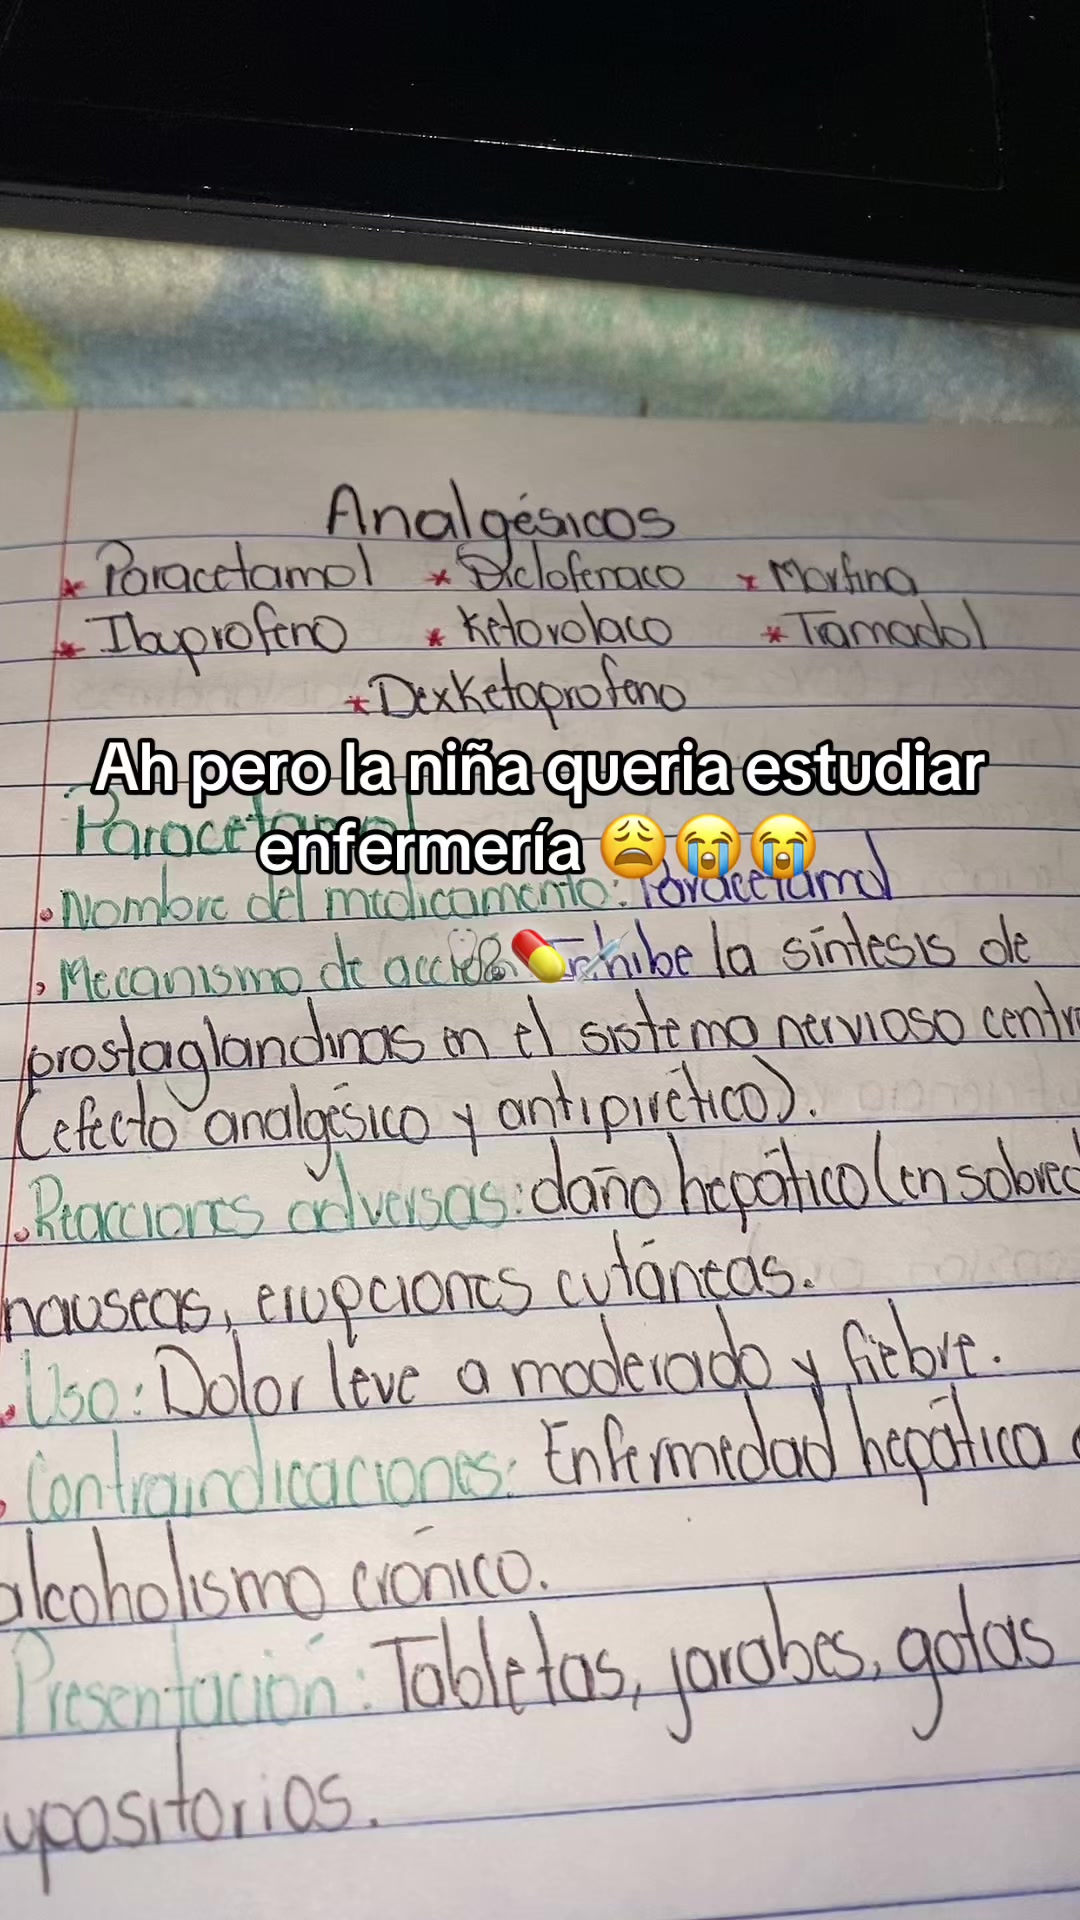 Analgésicos
* Paracetamol * Diclofenaco * Morfina
* Ibuprofeno * Ketorolaco * Tramadol
* Dexketoprofeno
Ah pero la niña queria estudiar
enfermería 😩😭😭
Paracetamol
• Nombre del medicamento: Paracetamol
• Mecanismo de acción: Inhibe la síntesis de
prostaglandinas en el sistema nervioso centr
(efecto analgésico y antipirético).
• Reacciones adversas: daño hepático (en sobred
nauseas, erupciones cutáneas.
• Uso: Dolor leve a moderado y fiebre.
• Contraindicaciones: Enfermedad hepática
alcoholismo crónico.
Presentación: Tabletas, jarabes, gotas
upositorios.